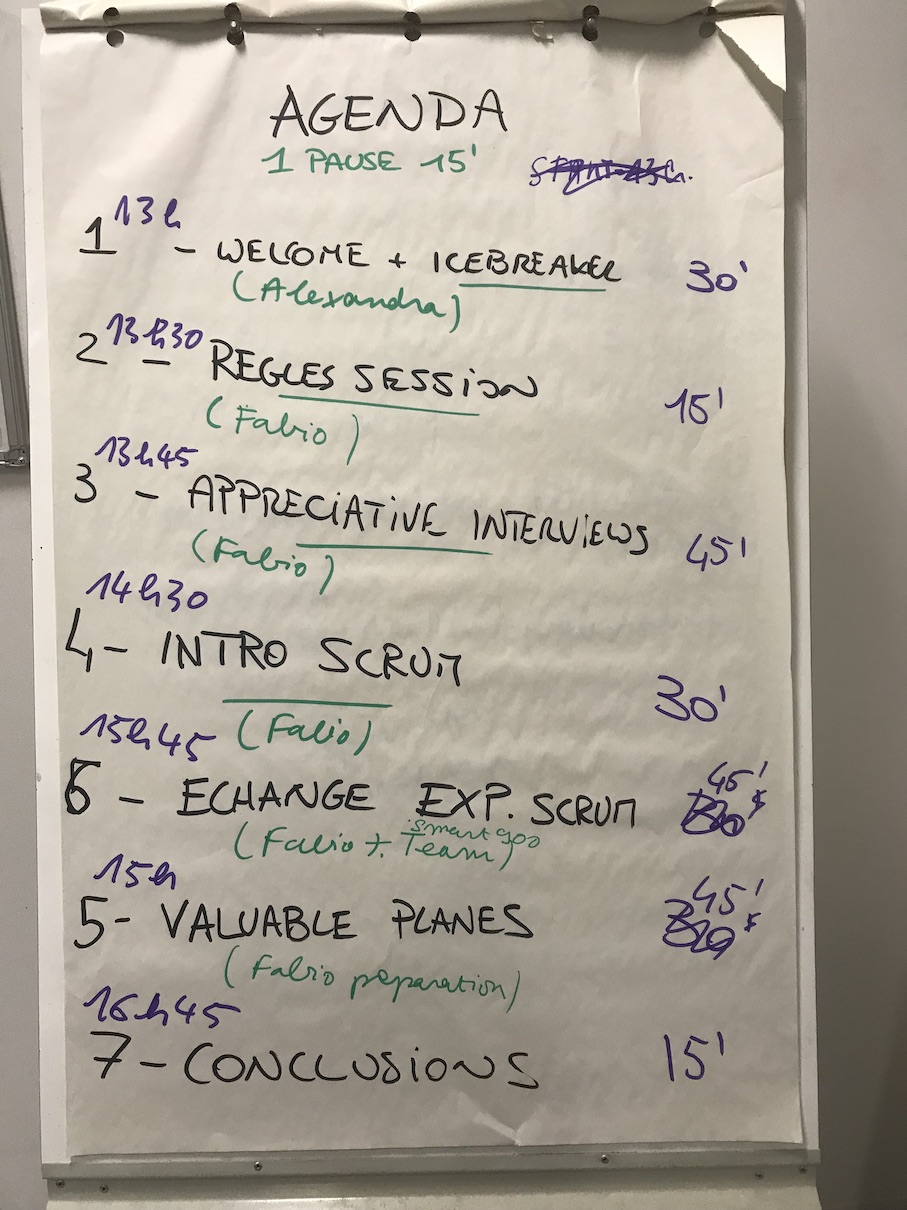 AGENDA
1 PAUSE 15'
13h
1 - WELCOME + ICEBREAKER 30'
(Alexandra)
13h30
2 - REGLES SESSION 15'
(Fabio)
13h45
3 - APPRECIATIVE INTERVIEWS 45'
(Fabio)
14h30
4 - INTRO SCRUM 30'
(Fabio)
15h45
6 - ECHANGE EXP. SCRUM 45'
(Fabio + Team) smart goo
15h
5 - VALUABLE PLANES 45'
(Fabio preparation)
16h45
7 - CONCLUSIONS 15'